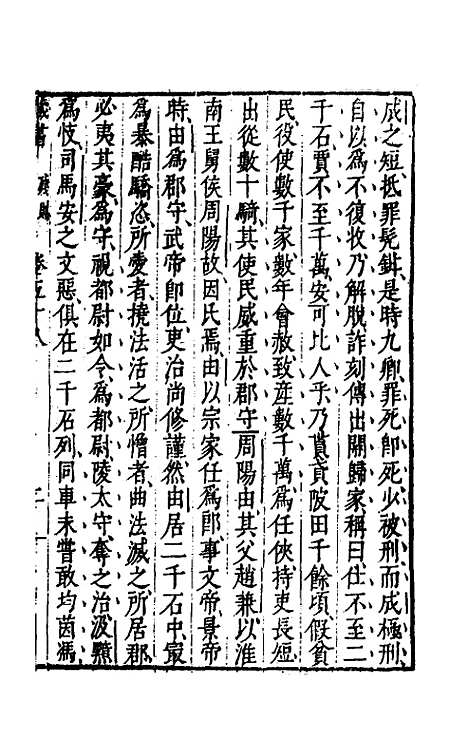 成之短抵罪髡鉗是時九卿罪死卽死少被刑而成極刑
自以爲不復收乃解脫詐刻傳出關歸家稱曰仕不至二
千石賈不至千萬安可比人乎乃貰貣陂田千餘頃假貧
民役使數千家數年會赦致産數千萬爲任俠持吏長短
出從數十騎其使民威重於郡守周陽由其父趙兼以淮
南王舅侯周陽故因氏焉由以宗家任爲郎事文帝景帝
時由爲郡守武帝卽位吏治尚修謹然由居二千石中㝡
爲暴酷驕恣所愛者撓法活之所憎者曲法滅之所居郡
必夷其豪爲守視都尉如令爲都尉陵太守奪之治汲黯
爲忮司馬安之文惡俱在二千石列同車未嘗敢均茵馮
卷五十八
二